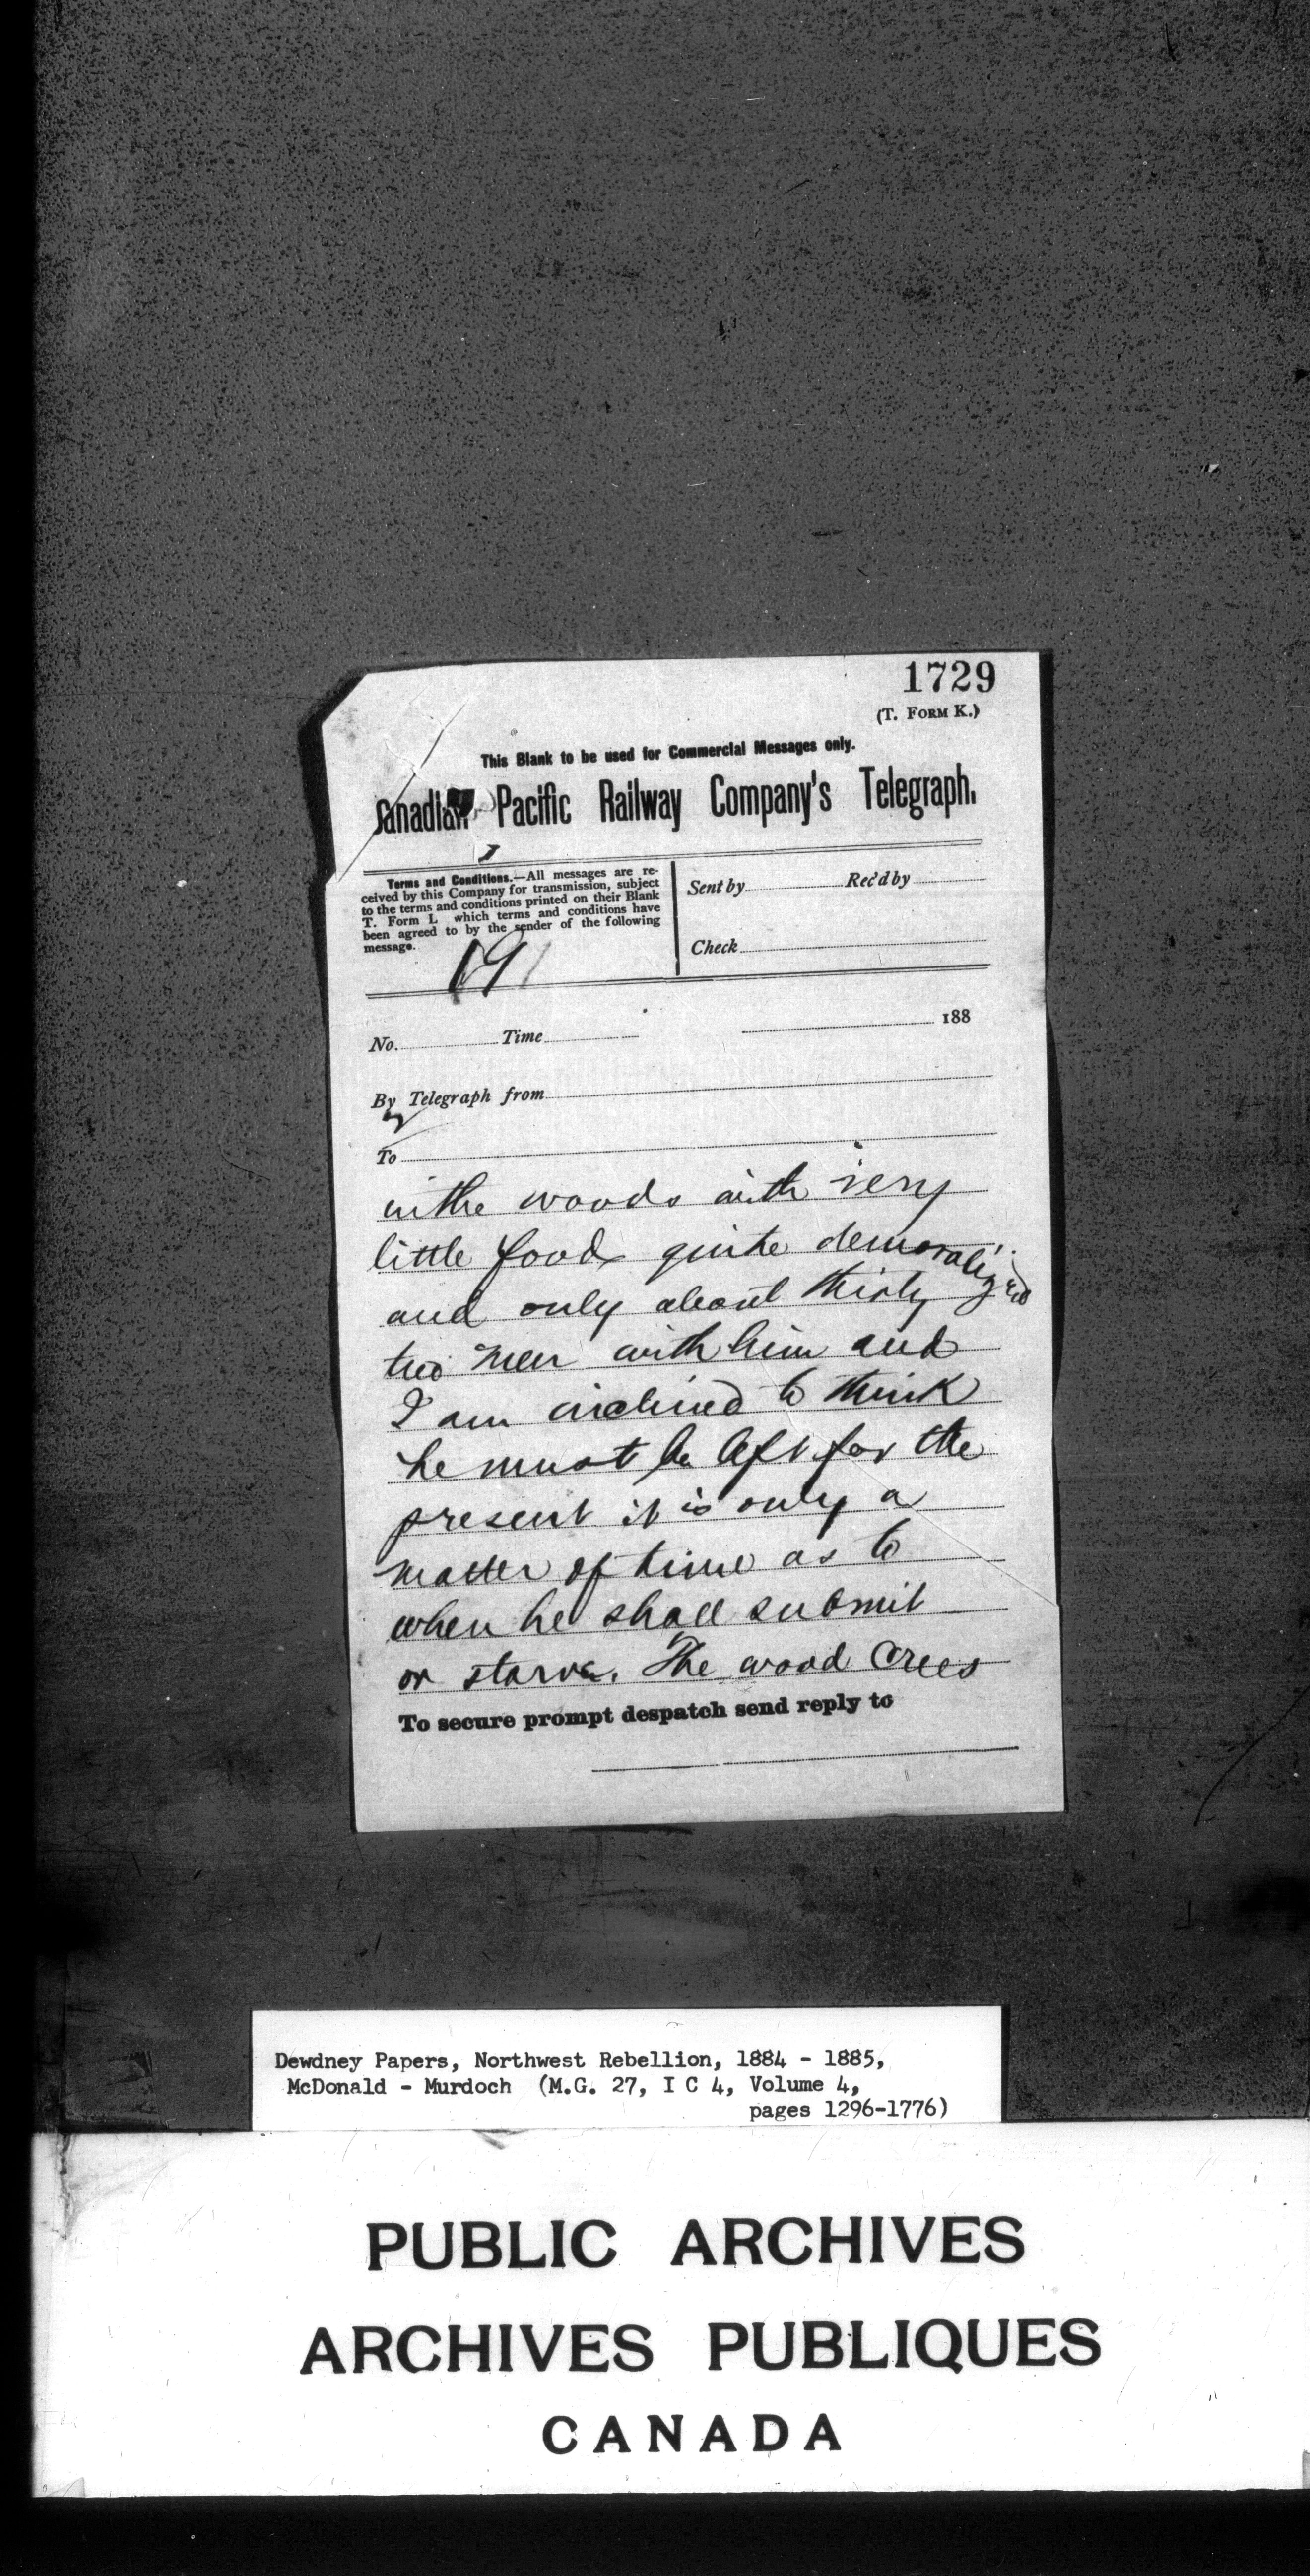 1729
(T. FORM K.)
This Blank to be used for Commercial Messages only.
Canadian Pacific Railway Company's Telegraph.
Terms and Conditions.—All messages are re-
ceived by this Company for transmission, subject
to the terms and conditions printed on their Blank
T. Form L which terms and conditions have
been agreed to by the sender of the following
message.
Sent by Rec'd by
Check
191
No. Time 188
By Telegraph from
To
in the woods with very
little food quite demoralized
and only about thirty
two men with him and
I am inclined to think
he must be left for the
present it is only a
matter of time as to
when he shall submit
or starve. The wood Crees
To secure prompt despatch send reply to
Dewdney Papers, Northwest Rebellion, 1884 - 1885,
McDonald - Murdoch (M.G. 27, I C 4, Volume 4,
pages 1296-1776)
PUBLIC ARCHIVES
ARCHIVES PUBLIQUES
CANADA